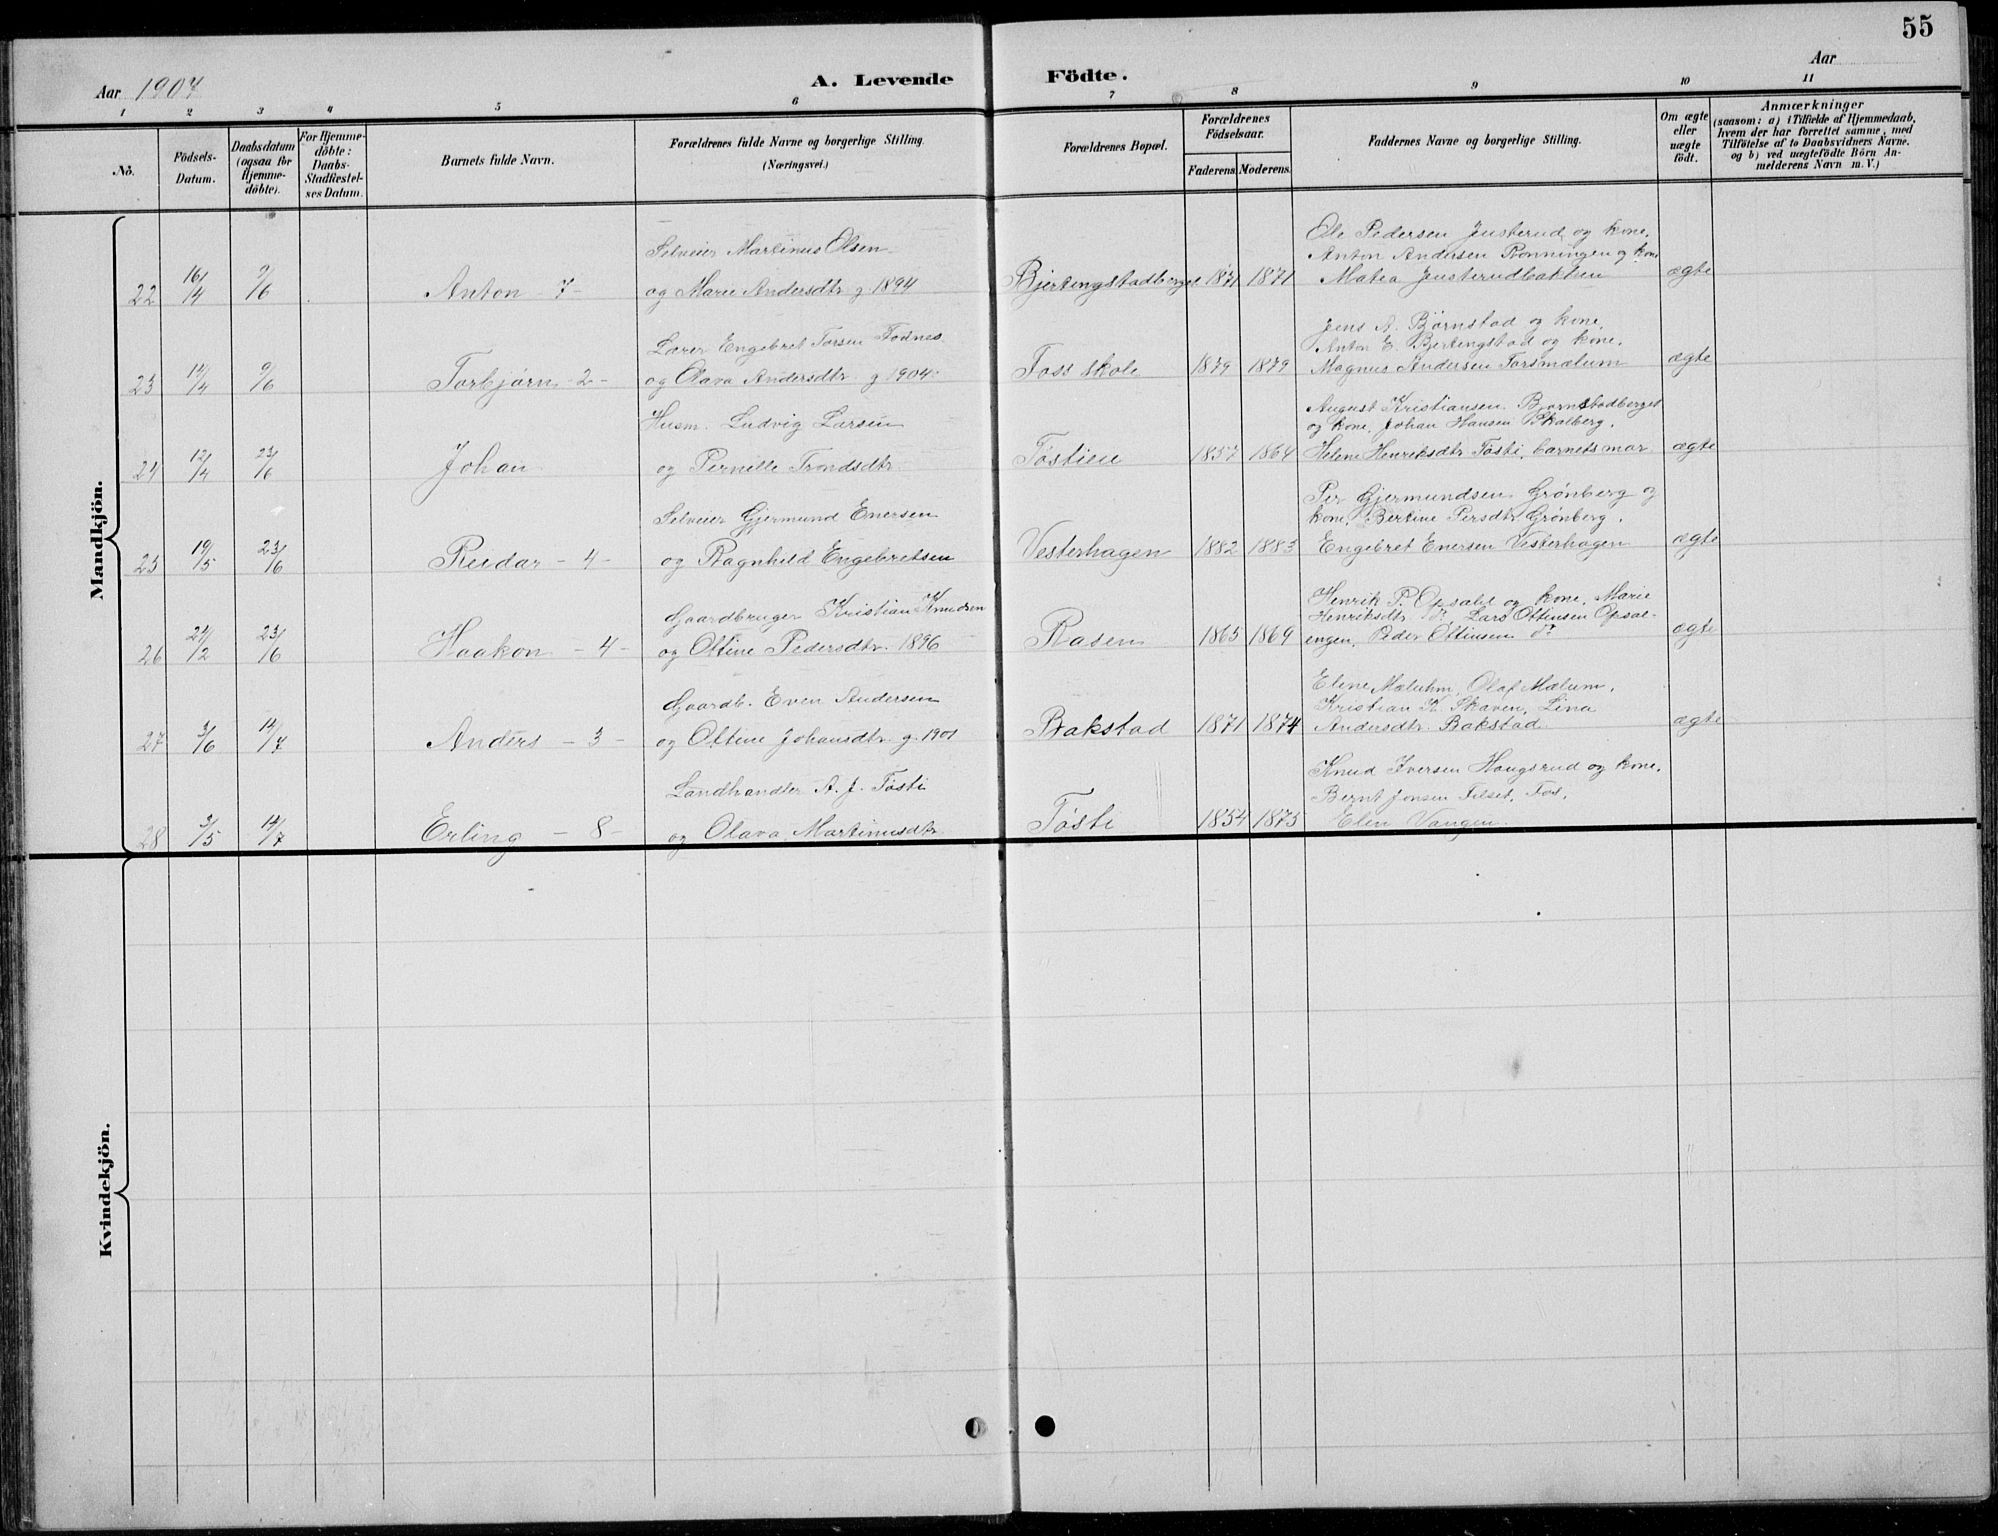 55
Aar 1907
A. Levende Födte.
Aar
1 2 3 4 5 6 7 8 9 10 11
No.
Födsels-
Datum.
Daabsdatum
(ogsaa for
Hjemme-
döbte).
For Hjemme-
döbte:
Daabs-
Stadfæstel-
ses Datum.
Barnets fulde Navn.
Forældrenes fulde Navne og borgerlige Stilling.
(Næringsvei.)
Forældrenes Bopæl.
Forældrenes
Födselsaar.
Faderens. Moderens.
Faddernes Navne og borgerlige Stilling.
Om ægte
eller
uægte
födt.
Anmærkninger
(saasom: a) i Tilfælde af Hjemmedaab,
hvem der har forrettet samme, med
Tilföielse af to Daabsvidners Navne.
og b) ved uægtefödte Börn An-
melderens Navn m. V.)
Mandkjön.
Selveier Martinus Olsen
22 16/4 9/6 Anton - 7 - og Marie Andersdtr. g. 1894 Bjertingstadberget 1871 1871
Ole Pedersen Jensterud og kone.
Anton Andersen Rønningen og kone
Matea Jensterudbakken ægte
Lærer Engebret Torsen Fodnes
23 14/4 9/6 Torbjørn - 2 - og Olava Andersdtr. g. 1904 Foss skole 1879 1879
Jens A. Bjørnstad og kone.
Anton E. Bjertingstad og kone.
Magnus Andersen Torsmælum ægte
Husm. Ludvig Larsen
24 12/4 23/6 Johan og Pernille Trondsdtr. Tøstien 1857 1864
August Kristiansen Bjørnstadberget
og kone, Johan Hansen Skalberg.
Helene Henriksdtr Tøsti, barnets mor ægte
Selveier Gjermund Enersen
25 19/5 23/6 Reidar - 4 - og Ragnhild Engebretsen Vesterhagen 1882 1883
Per Gjermundsen Grønberg og
kone, Bertine Persdtr Grønberg.
Engebret Enersen Vesterhagen ægte
Gaardbruger Kristian Knudsen
26 24/2 23/6 Haakon - 4 - og Ottine Pedersdtr. 1896 Rasen 1865 1869
Henrik P. Opsahl og kone, Marie
Henriksdtr. R., Lars Ottinsen Opsal-
engen, Peder Ottinsen do ægte
Gaardb. Even Andersen
27 3/6 14/7 Anders - 3 - og Ottine Johansdtr. g. 1901 Bakstad 1871 1874
Elene Mæluhm, Olaf Mælum,
Kristian K. Skaven, Lina
Andersdtr. Bakstad ægte
Landhandler A. J. Tøsti
28 3/5 14/7 Erling - 8 - og Olava Martinusdtr Tøsti 1854 1875
Knud Iversen Haugsrud og kone.
Bernt Jonsen Filset, Fos.
Elen Vangen.
Kvindekjön.